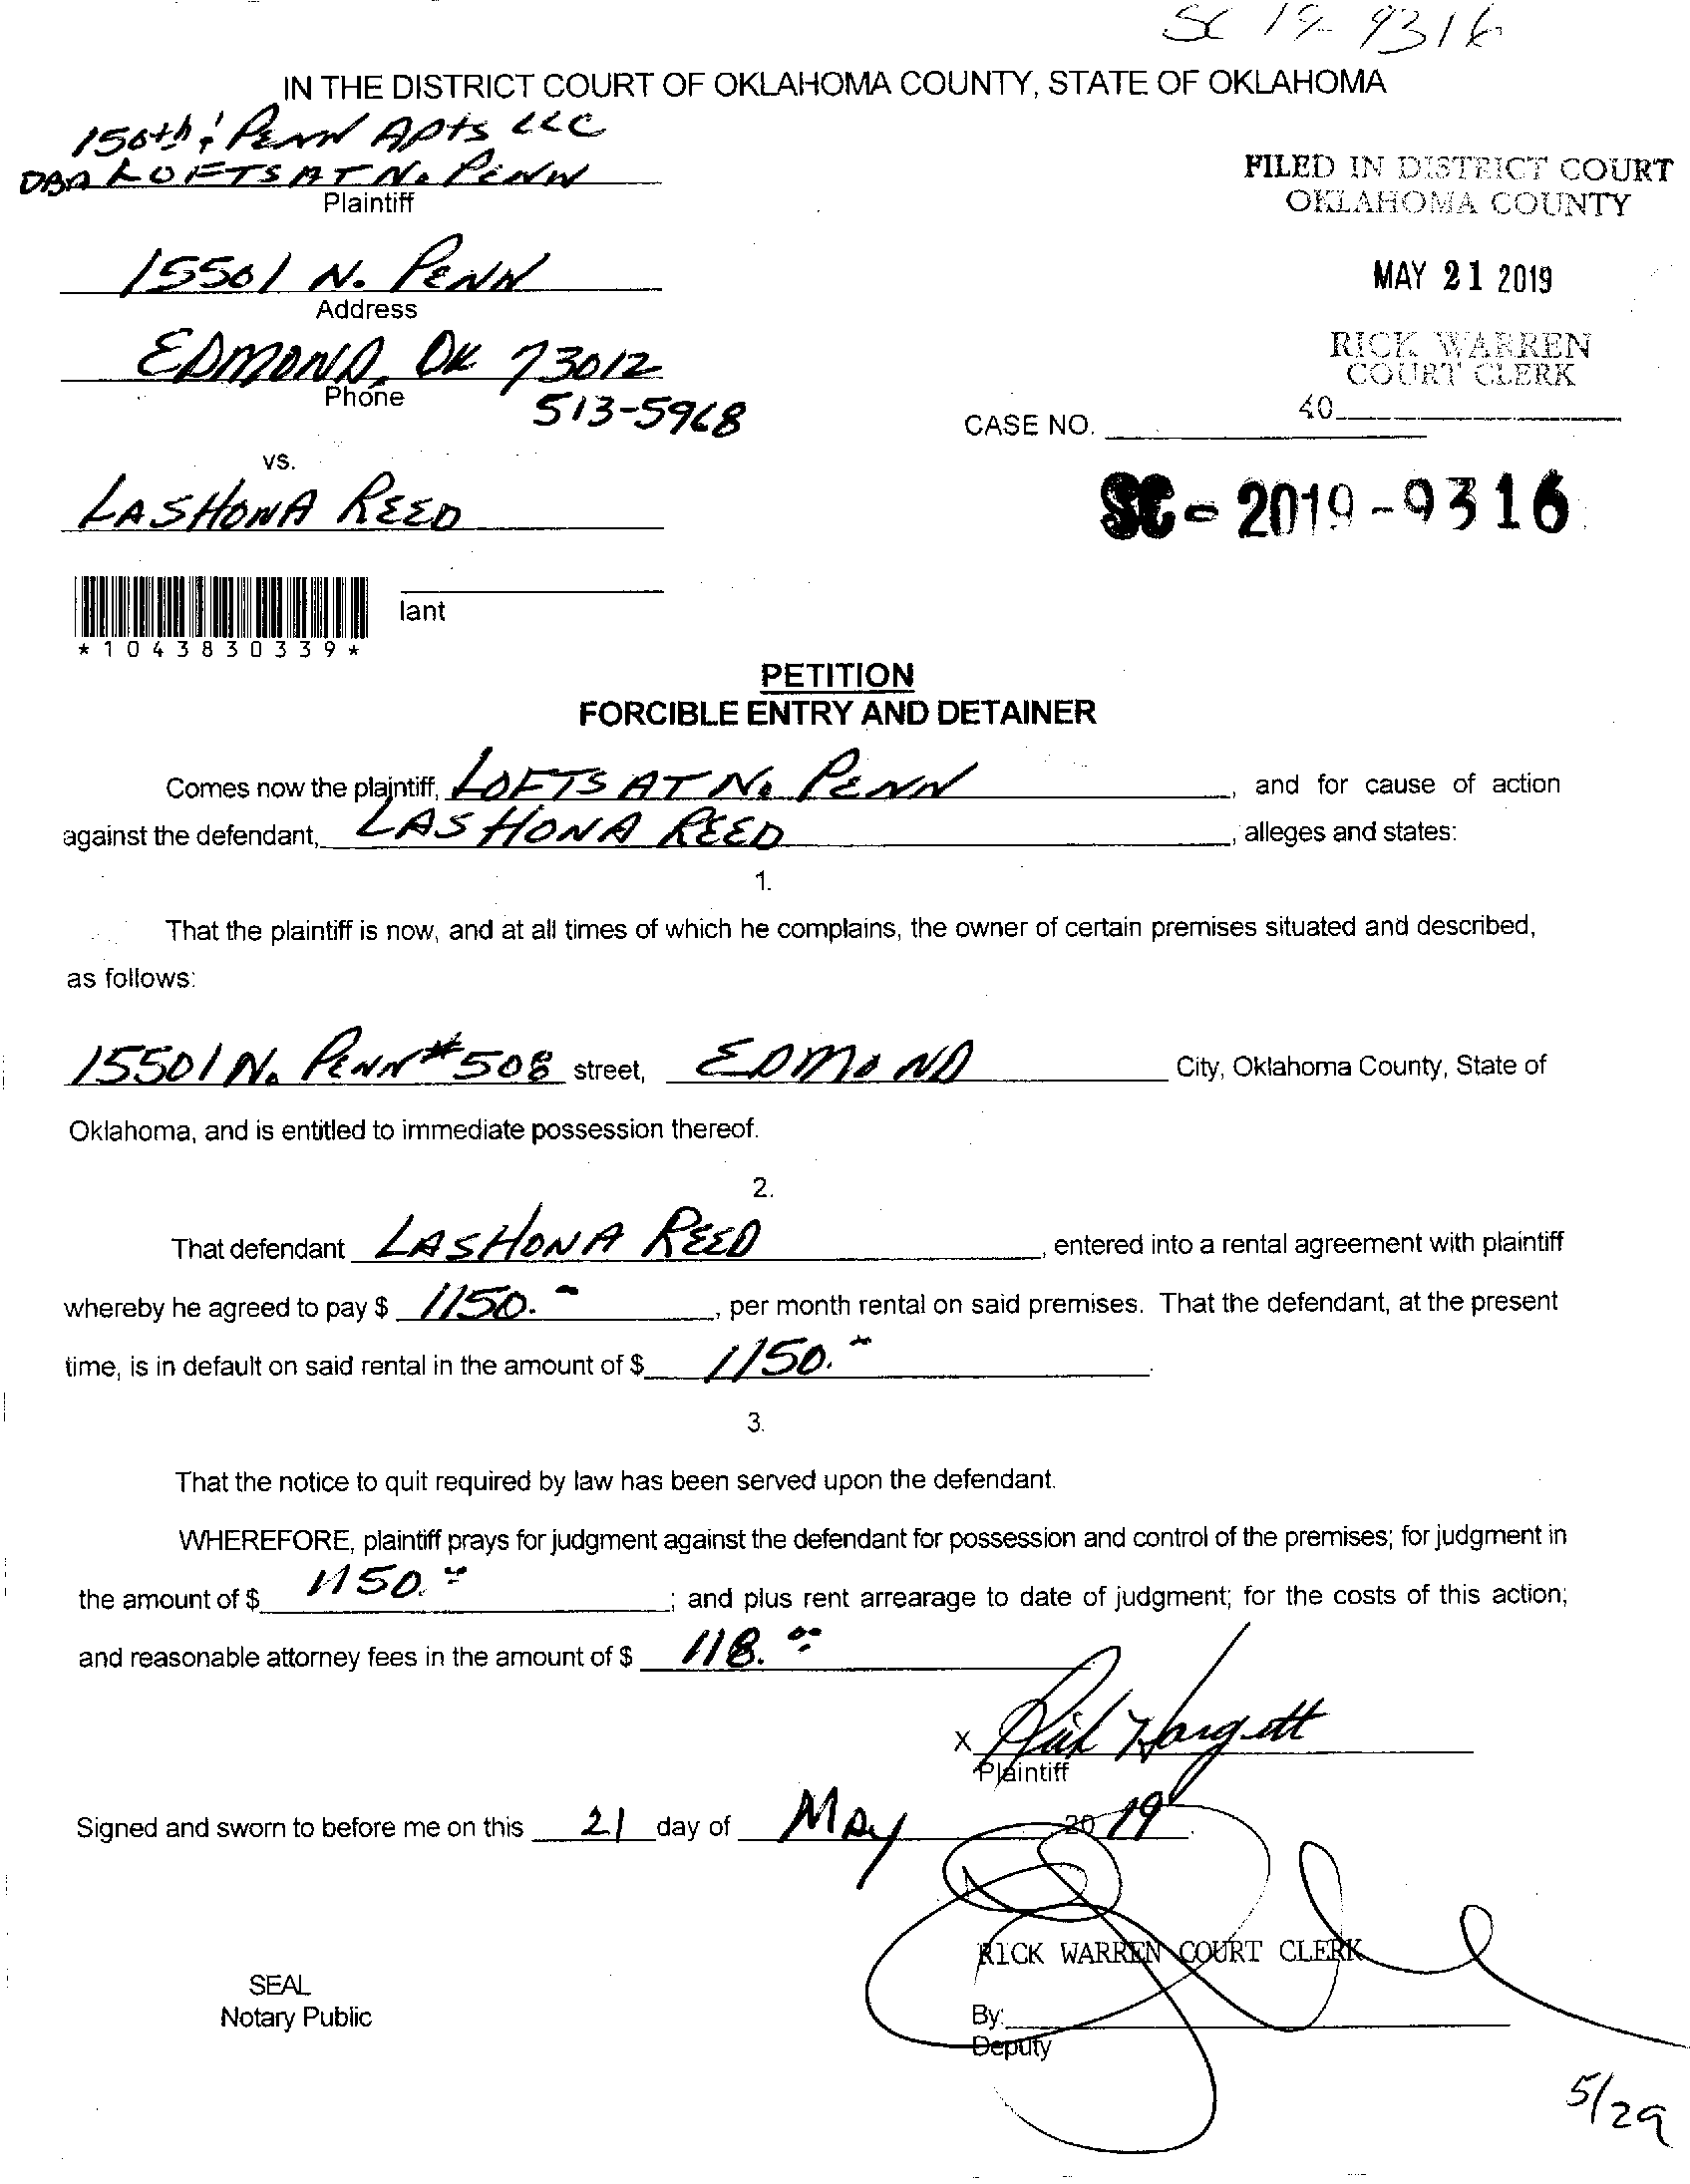 SC 19-9316
IN THE DISTRICT COURT OF OKLAHOMA COUNTY, STATE OF OKLAHOMA
150th & PENN APTS LLC
DBA LOFTS AT N. PENN
Plaintiff
FILED IN DISTRICT COURT
OKLAHOMA COUNTY
15501 N. PENN
Address
MAY 21 2019
EDMOND, OK 73012
Phone
513-5968
RICK WARREN
COURT CLERK
40
CASE NO.
vs.
LASHONA REED
SC - 2019 - 9316
lant
*1043830339*
PETITION
FORCIBLE ENTRY AND DETAINER
Comes now the plaintiff, LOFTS AT N. PENN, and for cause of action
against the defendant, LASHONA REED, alleges and states:
1.
That the plaintiff is now, and at all times of which he complains, the owner of certain premises situated and described,
as follows:
15501 N. PENN #508 street, EDMOND City, Oklahoma County, State of
Oklahoma, and is entitled to immediate possession thereof.
2.
That defendant LASHONA REED, entered into a rental agreement with plaintiff
whereby he agreed to pay $ 1150.-, per month rental on said premises. That the defendant, at the present
time, is in default on said rental in the amount of $ 1150.-.
3.
That the notice to quit required by law has been served upon the defendant.
WHEREFORE, plaintiff prays for judgment against the defendant for possession and control of the premises; for judgment in
the amount of $ 1150.-; and plus rent arrearage to date of judgment; for the costs of this action;
and reasonable attorney fees in the amount of $ 118.00
X Rick Hargett
Plaintiff
Signed and sworn to before me on this 21 day of MAY 2019.
RICK WARREN COURT CLERK
SEAL
Notary Public
By:
Deputy
5/29